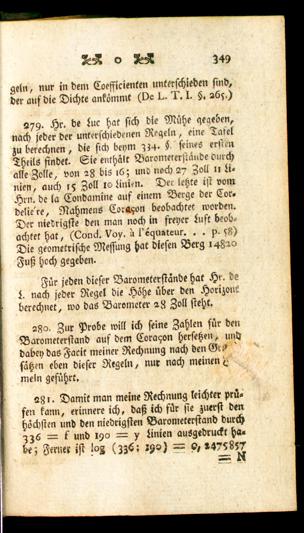 o 349
geln, nur in dem Coefficienten unterschieden sind,
der auf die Dichte ankömmt (De L. T. I. §. 265.)
279. Hr. de Luc hat sich die Mühe gegeben,
nach jeder der unterschiedenen Regeln, eine Tafel
zu berechnen, die sich beym 334 §. seines ersten
Theils findet. Sie enthält Barometerstände durch
alle Zolle, von 28 bis 16; und noch 27 Zoll 11 Li-
nien, auch 15 Zoll 10 Linien. Der letzte ist vom
Hrn. de la Condamine auf einem Berge der Cor-
deliere, Nahmens Coraçon beobachtet worden.
Der niedrigste den man noch in freyer Luft beob-
achtet hat, (Cond. Voy. à l'équateur. . . p. 58)
Die geometrische Messung hat diesen Berg 14820
Fuß hoch gegeben.
Für jeden dieser Barometerstände hat Hr. de
L. nach jeder Regel die Höhe über den Horizont
berechnet, wo das Barometer 28 Zoll steht.
280. Zur Probe will ich seine Zahlen für den
Barometerstand auf dem Coraçon hersetzen, und
dabey das Facit meiner Rechnung nach den
sätzen eben dieser Regeln, nur nach meinen
meln geführt.
281. Damit man meine Rechnung leichter prü-
fen kann, erinnere ich, daß ich für sie zuerst den
höchsten und den niedrigsten Barometerstand durch
336 = f und 190 = y Linien ausgedruckt ha-
be; Ferner ist log (336; 190) = 0, 2475857
= N